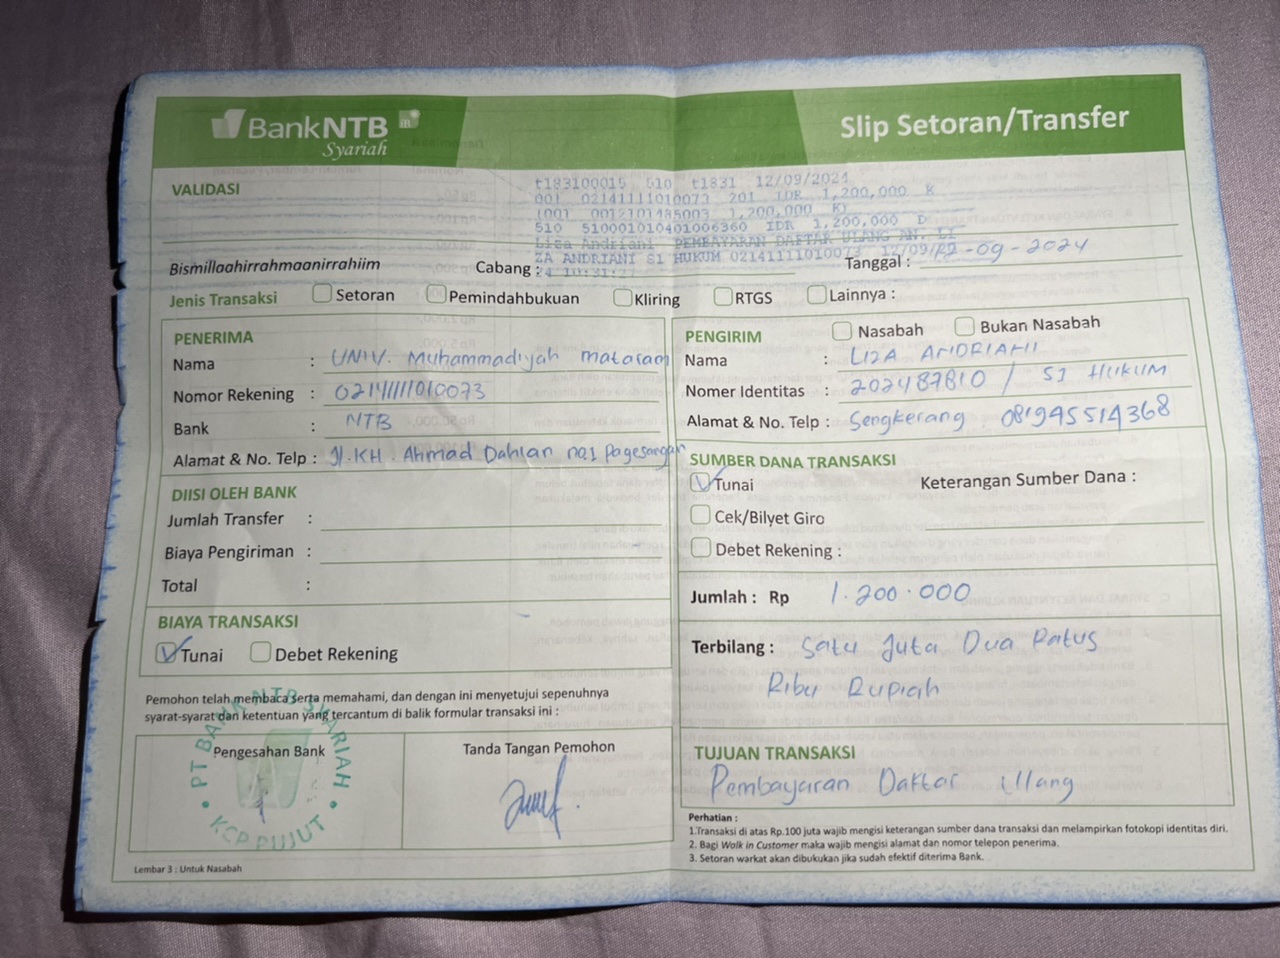 BankNTB
Syariah
Slip Setoran/Transfer
VALIDASI
t183100015 510 t1831 12/09/2024
001 02141111010073 201 IDR 1,200,000 K
1001 0012101485003 1,200,000 K)
510 510001010401006360 IDR 1,200,000 D
Liza Andriani PEMBAYARAN DAFTAR ULANG AN. LI
ZA ANDRIANI S1 HUKUM 02141111010073 12/09/
Bismillaahirrahmaanirrahiim
Cabang :
Tanggal : 12-09-2024
Jenis Transaksi Setoran Pemindahbukuan Kliring RTGS Lainnya :
PENERIMA
Nama : UNIV. Muhammadiyah mataram
Nomor Rekening : 02141111010073
Bank : NTB
Alamat & No. Telp : Jl.KH. Ahmad Dahlan no.1 pagesangan
DIISI OLEH BANK
Jumlah Transfer :
Biaya Pengiriman :
Total :
BIAYA TRANSAKSI
Tunai Debet Rekening
Pemohon telah membaca serta memahami, dan dengan ini menyetujui sepenuhnya
syarat-syarat dan ketentuan yang tercantum di balik formular transaksi ini :
Pengesahan Bank
PT BANK NTB SYARIAH
KCP PUJUT
Tanda Tangan Pemohon
Lembar 3 : Untuk Nasabah
PENGIRIM Nasabah Bukan Nasabah
Nama : LIZA ANDRIANI
Nomer Identitas : 202487810 / S1 HUKUM
Alamat & No. Telp : Sengkerang. 081945514368
SUMBER DANA TRANSAKSI
Tunai
Keterangan Sumber Dana :
Cek/Bilyet Giro
Debet Rekening :
Jumlah : Rp 1.200.000
Terbilang : Satu Juta Dua Ratus
Ribu Rupiah
TUJUAN TRANSAKSI
Pembayaran Daftar Ulang
Perhatian :
1.Transaksi di atas Rp.100 juta wajib mengisi keterangan sumber dana transaksi dan melampirkan fotokopi identitas diri.
2. Bagi Walk in Customer maka wajib mengisi alamat dan nomor telepon penerima.
3. Setoran warkat akan dibukukan jika sudah efektif diterima Bank.